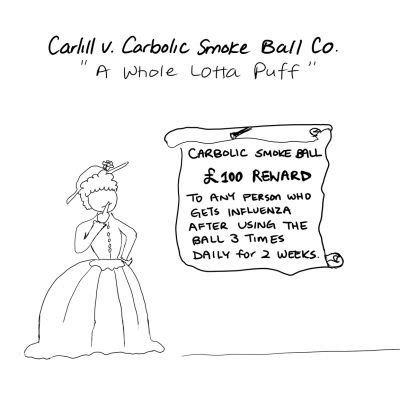 Carlill v. Carbolic Smoke Ball Co.
"A Whole Lotta Puff"
CARBOLIC SMOKE BALL
£100 REWARD
TO ANY PERSON WHO
GETS INFLUENZA
AFTER USING THE
BALL 3 TIMES
DAILY for 2 WEEKS.